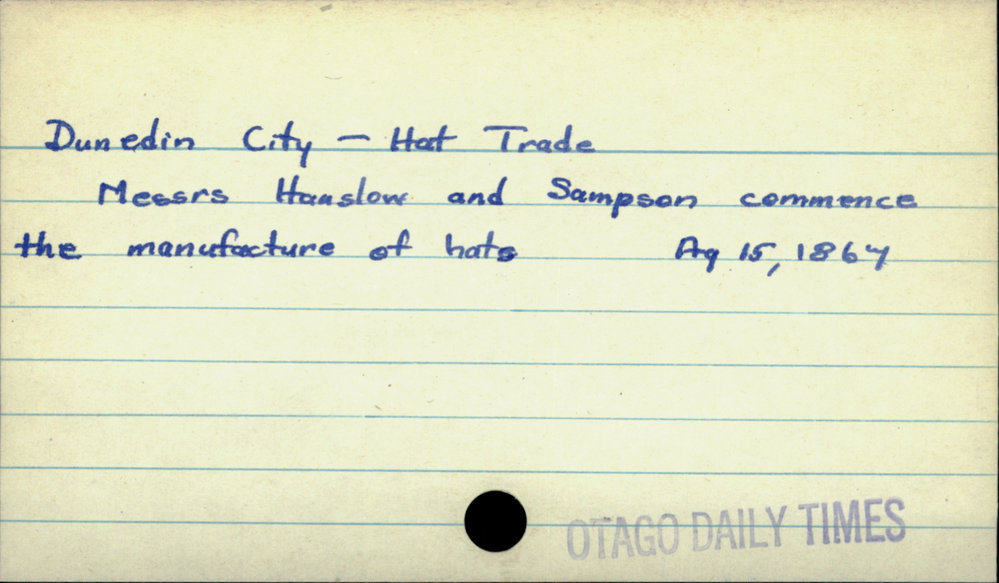 Dunedin City - Hat Trade
Messrs Hanslow and Sampson commence
the manufacture of hats Ag 15, 1867
OTAGO DAILY TIMES